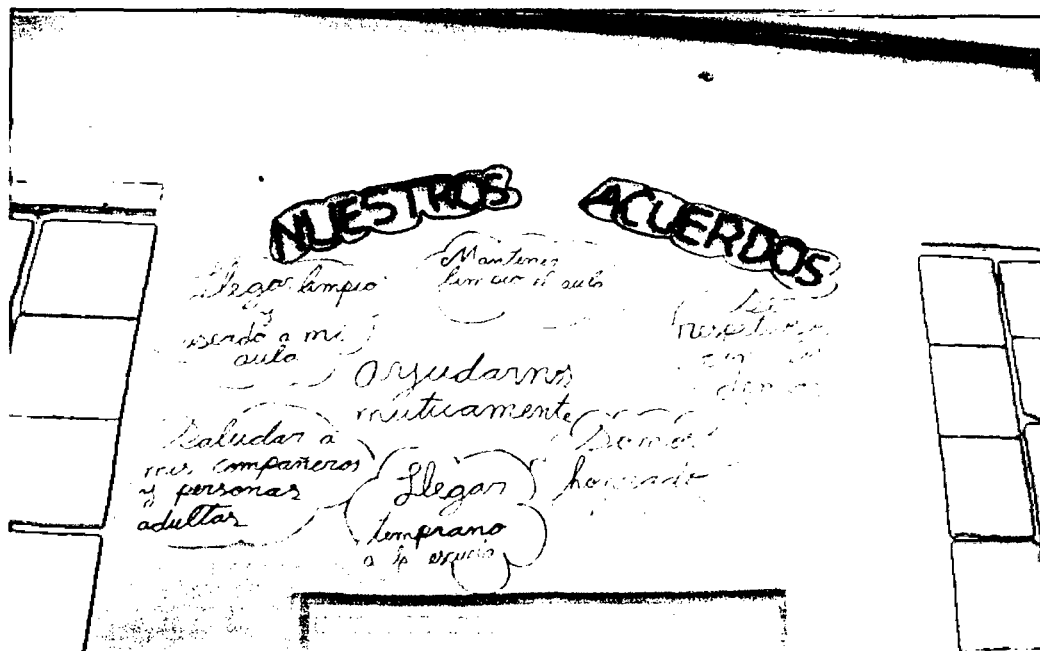 NUESTROS ACUERDOS
Llegar limpio
y
aseado a mi
aula
Mantener
limpio el aula
Ser
respetuoso
con los
demás
ayudarnos
mutuamente
Saludar a
mis compañeros
y personas
adultas
Llegar
temprano
a la escuela
Somos
honrado